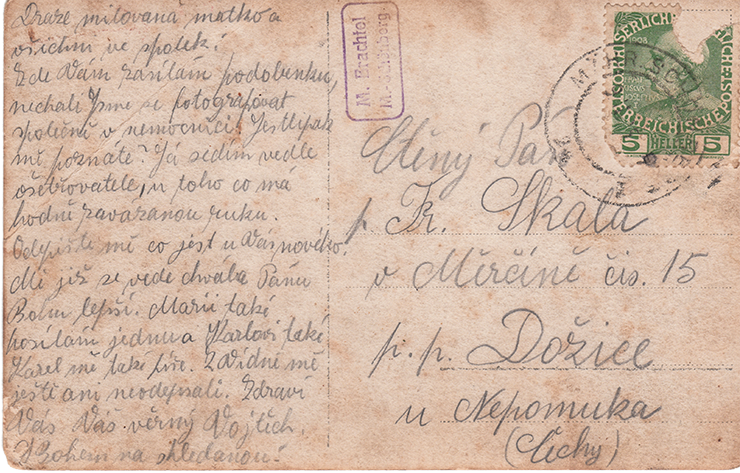 Draze milovaná matko a
všichni ve spolek!
Zde Vám zasílám podobenku,
nechali jsme se fotografovat
společně v nemocnici. Jestlipak
mě poznáte? Já sedím vedle
ošetřovatele, u toho co má
hodně zavázanou ruku.
Odepište mě co jest u Vás nového.
Mě již se vede chvála Pánu
Bohu lepší. Marii také
posílám jednu a Karlovi také
Karel mě také píše. Z Vídně mě
ještě ani neodepsali. Zdraví
Vás Váš věrný Vojtěch.
S Bohem na shledanou!
M. Brachtel
M.-Schönberg
1908
5 HELLER 5
Ctěný Pán
p. Fr. Skala
v Měrčíně čís. 15
p. p. Dožice
u Nepomuka
(Čechy)